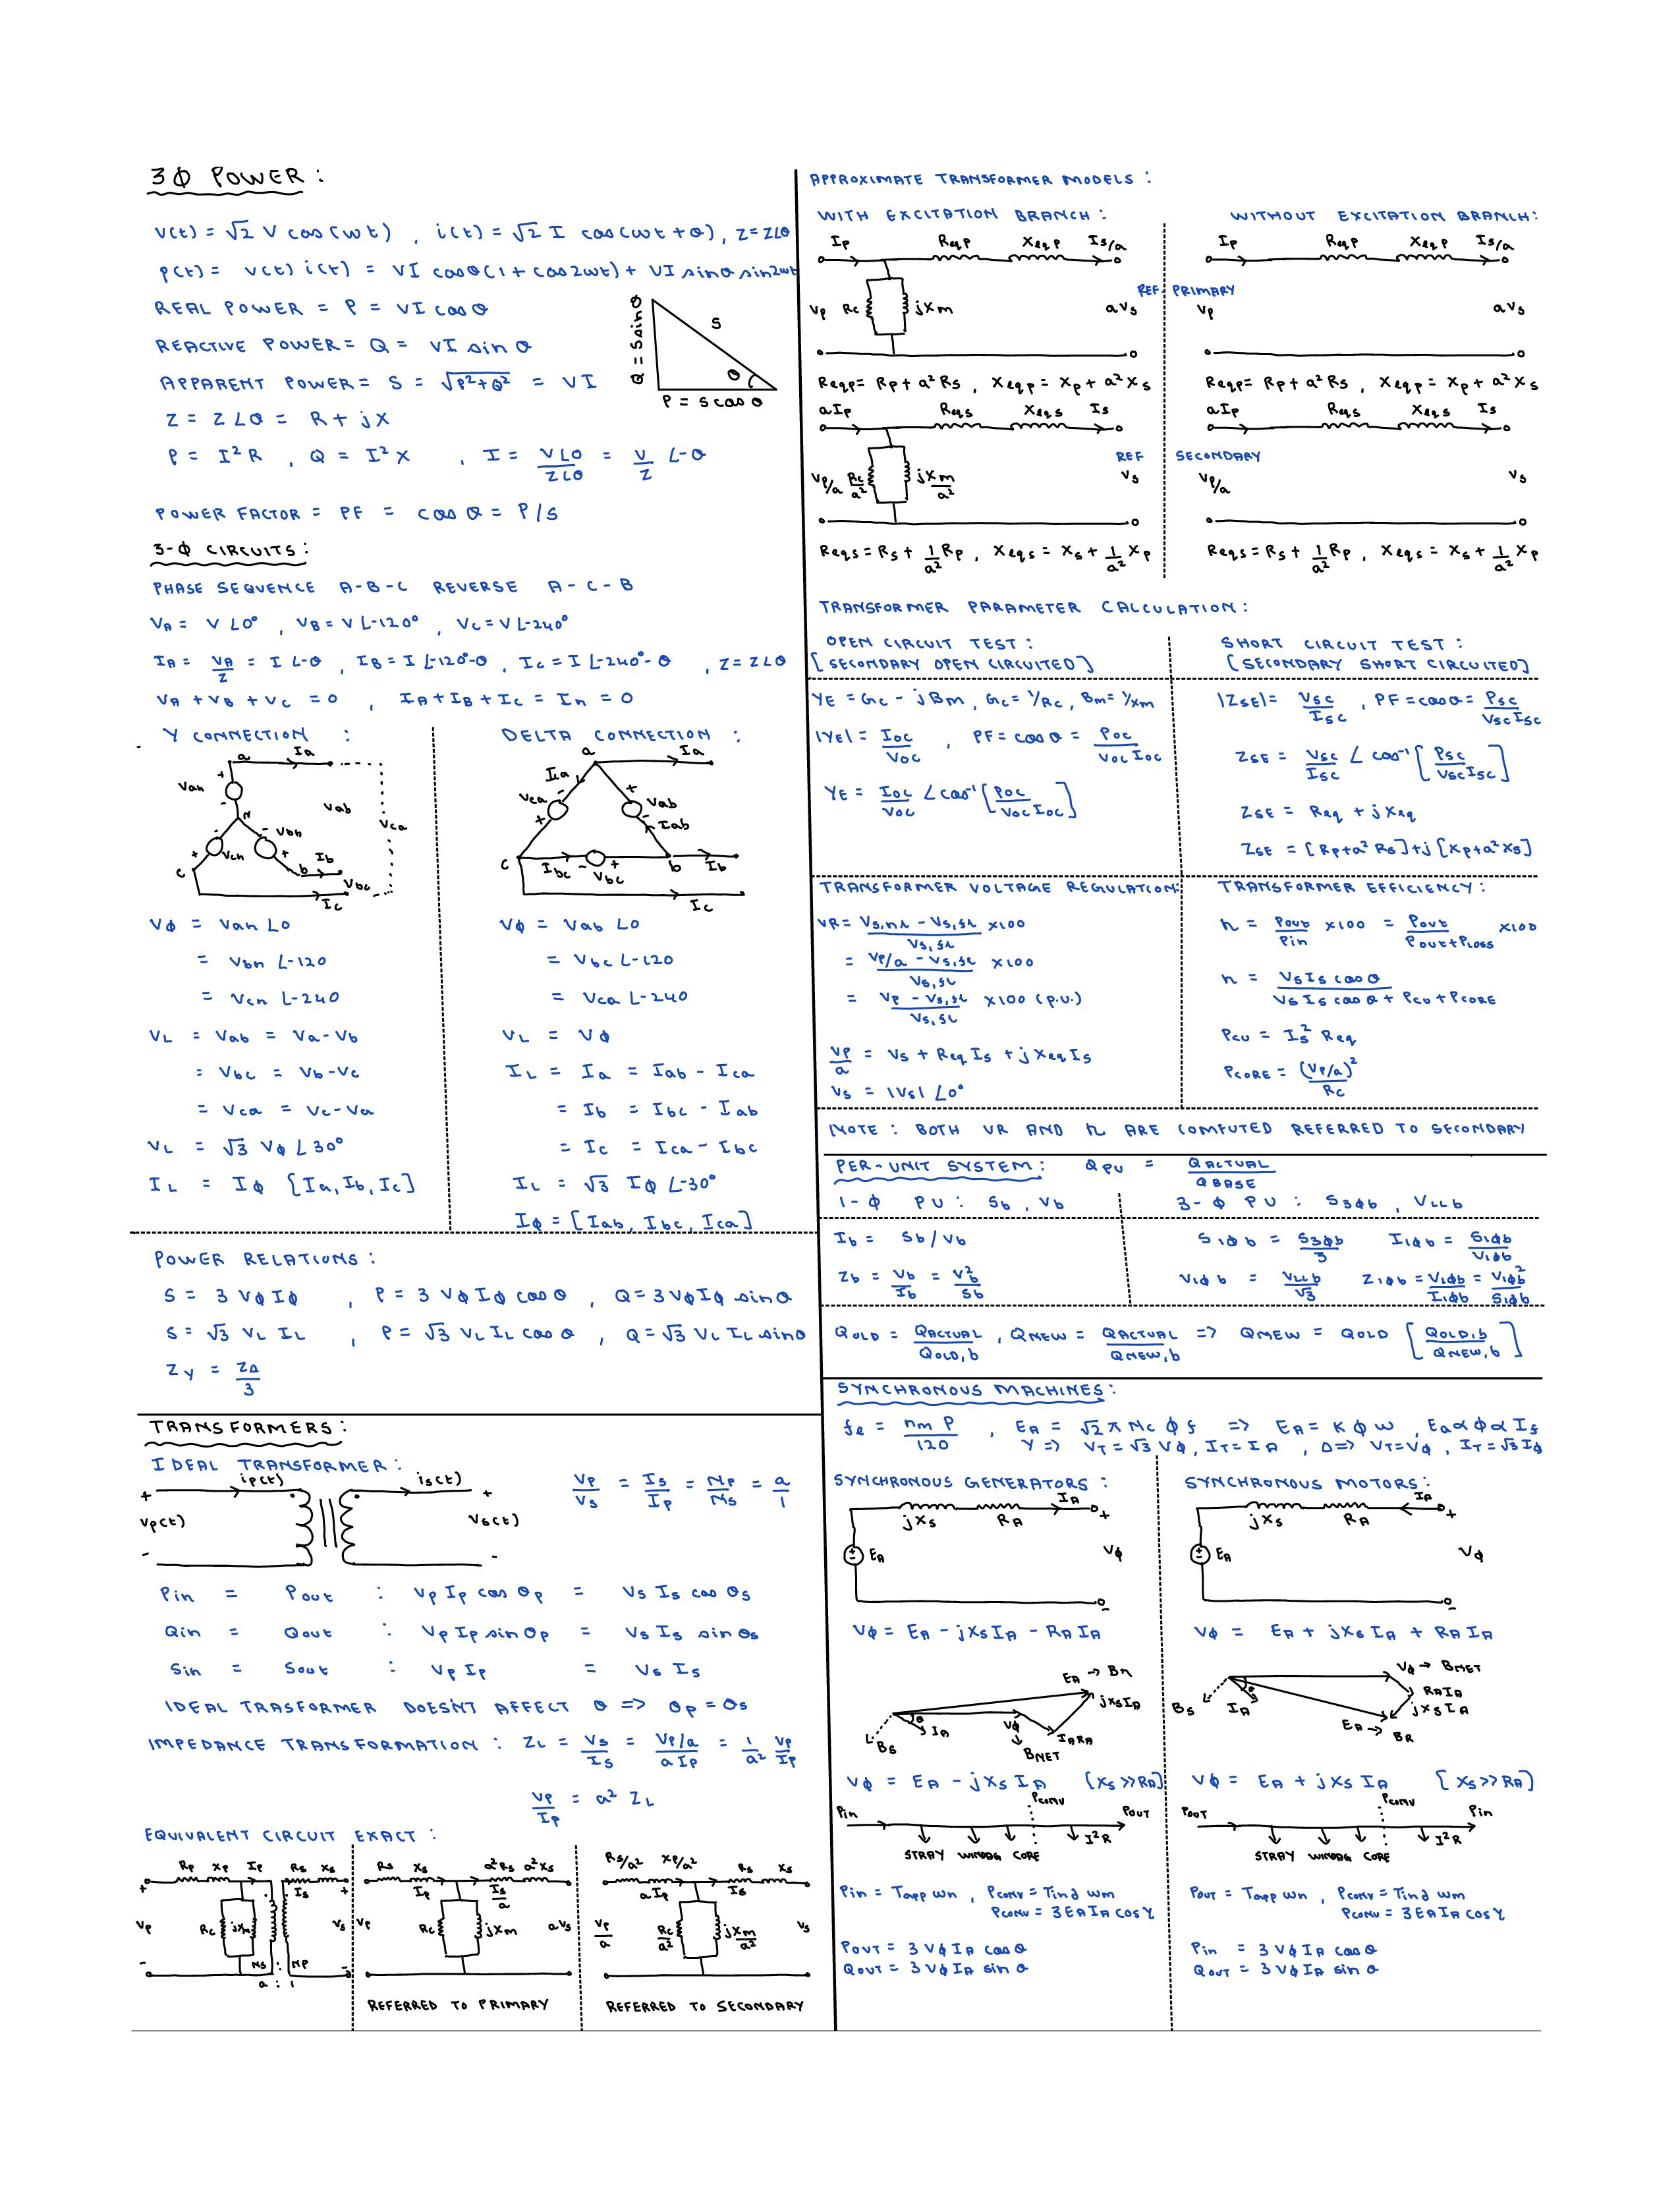 3Φ POWER :
v(t) = √2 V cos(wt) , i(t) = √2 I cos(wt + θ), Z = Z∠θ
p(t) = v(t) i(t) = VI cosθ(1 + cos2wt) + VI sinθ sin2wt
REAL POWER = P = VI cosθ
REACTIVE POWER = Q = VI sinθ
APPARENT POWER = S = √P²+Q² = VI
Q = S sinθ
S
θ
P = S cosθ
Z = Z∠θ = R + jX
P = I²R , Q = I²X , I = V∠0 / Z∠θ = V/Z ∠-θ
POWER FACTOR = PF = cosθ = P/S
3-Φ CIRCUITS :
PHASE SEQUENCE A-B-C REVERSE A-C-B
VA = V∠0° , VB = V∠-120° , VC = V∠-240°
IA = VA/Z = I∠-θ , IB = I∠-120°-θ , IC = I∠-240°-θ , Z = Z∠θ
VA + VB + VC = 0 , IA + IB + IC = In = 0
Y CONNECTION :
a Ia
Van Vab
N Vbn Vca
Vcn Ib
c b Vbc
Ic
VΦ = Van ∠0
= Vbn ∠-120
= Vcn ∠-240
VL = Vab = Va-Vb
= Vbc = Vb-Vc
= Vca = Vc-Va
VL = √3 VΦ ∠30°
IL = IΦ [Ia, Ib, Ic]
DELTA CONNECTION :
a Ia
Ica
Vca Vab
Iab
c Ibc Vbc b Ib
Ic
VΦ = Vab ∠0
= Vbc ∠-120
= Vca ∠-240
VL = VΦ
IL = Ia = Iab - Ica
= Ib = Ibc - Iab
= Ic = Ica - Ibc
IL = √3 IΦ ∠-30°
IΦ = [Iab, Ibc, Ica]
POWER RELATIONS :
S = 3 VΦ IΦ , P = 3 VΦ IΦ cosθ , Q = 3 VΦ IΦ sinθ
S = √3 VL IL , P = √3 VL IL cosθ , Q = √3 VL IL sinθ
ZY = ZΔ/3
TRANSFORMERS :
IDEAL TRANSFORMER :
ip(t) is(t)
+ +
vp(t) Vs(t)
- -
Vp/Vs = Is/Ip = Np/Ns = a/1
Pin = Pout : Vp Ip cosθp = Vs Is cosθs
Qin = Qout : Vp Ip sinθp = Vs Is sinθs
Sin = Sout : Vp Ip = Vs Is
IDEAL TRASFORMER DOESN'T AFFECT θ => θp = θs
IMPEDANCE TRANSFORMATION : ZL = Vs/Is = Vp/a / aIp = 1/a² Vp/Ip
Vp/Ip = a² ZL
EQUIVALENT CIRCUIT EXACT :
Rp Xp Ip Rs Xs
+ Is +
Vp Rc jXm Vs
- NS : NP -
a : 1
Rs Xs a²Rs a²Xs
Ip Is/a
Vp Rc jXm aVs
REFERRED TO PRIMARY
Rs/a² Xp/a² Rs Xs
aIp Is
Vp/a Rc/a² jXm/a² Vs
REFERRED TO SECONDARY
APPROXIMATE TRANSFORMER MODELS :
WITH EXCITATION BRANCH : WITHOUT EXCITATION BRANCH:
Ip Reqp Xeqp Is/a Ip Reqp Xeqp Is/a
REF PRIMARY
Vp Rc jXm aVs Vp aVs
Reqp = Rp + a²Rs , Xeqp = Xp + a²Xs Reqp = Rp + a²Rs , Xeqp = Xp + a²Xs
aIp Reqs Xeqs Is aIp Reqs Xeqs Is
REF SECONDARY
Vp/a Rc/a² jXm/a² Vs Vp/a Vs
Reqs = Rs + 1/a² Rp , Xeqs = Xs + 1/a² Xp Reqs = Rs + 1/a² Rp , Xeqs = Xs + 1/a² Xp
TRANSFORMER PARAMETER CALCULATION :
OPEN CIRCUIT TEST :
[SECONDARY OPEN CIRCUITED]
YE = Gc - jBm , Gc = 1/Rc , Bm = 1/Xm
|YE| = Ioc/Voc , PF = cosθ = Poc / Voc Ioc
YE = Ioc/Voc ∠cos⁻¹[Poc / Voc Ioc]
SHORT CIRCUIT TEST :
[SECONDARY SHORT CIRCUITED]
|ZSE| = Vsc/Isc , PF = cosθ = Psc / Vsc Isc
ZSE = Vsc/Isc ∠ cos⁻¹[Psc / Vsc Isc]
ZSE = Req + jXeq
ZSE = [Rp+a²Rs]+j[Xp+a²Xs]
TRANSFORMER VOLTAGE REGULATION:
VR = Vs,nl - Vs,fl / Vs,fl x100
= Vp/a - Vs,fl / Vs,fl x100
= Vp - Vs,fl / Vs,fl x100 (p.u.)
Vp/a = Vs + Req Is + jXeq Is
Vs = |Vs| ∠0°
TRANSFORMER EFFICIENCY :
η = Pout/Pin x100 = Pout / Pout+Ploss x100
η = Vs Is cosθ / Vs Is cosθ + Pcu + PCORE
Pcu = Is² Req
PCORE = (Vp/a)² / Rc
NOTE : BOTH VR AND η ARE COMPUTED REFERRED TO SECONDARY
PER-UNIT SYSTEM : QPU = QACTUAL / QBASE
1-Φ PU : Sb , Vb 3-Φ PU : S3Φb , VLLb
Ib = Sb/Vb S1Φb = S3Φb/3 I1Φb = S1Φb/V1Φb
Zb = Vb/Ib = Vb²/Sb V1Φb = VLLb/√3 Z1Φb = V1Φb/I1Φb = V1Φb²/S1Φb
QOLD = QACTUAL/QOLD,b , QNEW = QACTUAL/QNEW,b => QNEW = QOLD [QOLD,b / QNEW,b]
SYNCHRONOUS MACHINES :
fe = nm P / 120 , EA = √2 π Nc Φ f => EA = K Φ w , Ea ∝ Φ ∝ If
Y => VT = √3 VΦ, IT = IA , Δ => VT = VΦ , IT = √3 IΦ
SYNCHRONOUS GENERATORS :
IA
jXs RA +
EA VΦ
-
VΦ = EA - jXs IA - RA IA
EA → Bn
jXsIA
θ IA VΦ IARA
Bs BNET
VΦ = EA - jXs IA [Xs >> RA]
Pin Pconv Pout
I²R
STRAY WINDAG CORE
Pin = Tapp wn , Pconv = Tind wm
Pconv = 3EAIA cosγ
Pout = 3 VΦ IA cosθ
Qout = 3 VΦ IA sinθ
SYNCHRONOUS MOTORS :
IA
jXs RA +
EA VΦ
-
VΦ = EA + jXs IA + RA IA
VΦ → BNET
θ RAIA
Bs IA jXsIA
EA → BR
VΦ = EA + jXs IA [Xs >> RA]
Pout Pconv Pin
I²R
STRAY WINDAG CORE
Pout = Tapp wn , Pconv = Tind wm
Pconv = 3EAIA cosγ
Pin = 3 VΦ IA cosθ
Qout = 3 VΦ IA sinθ